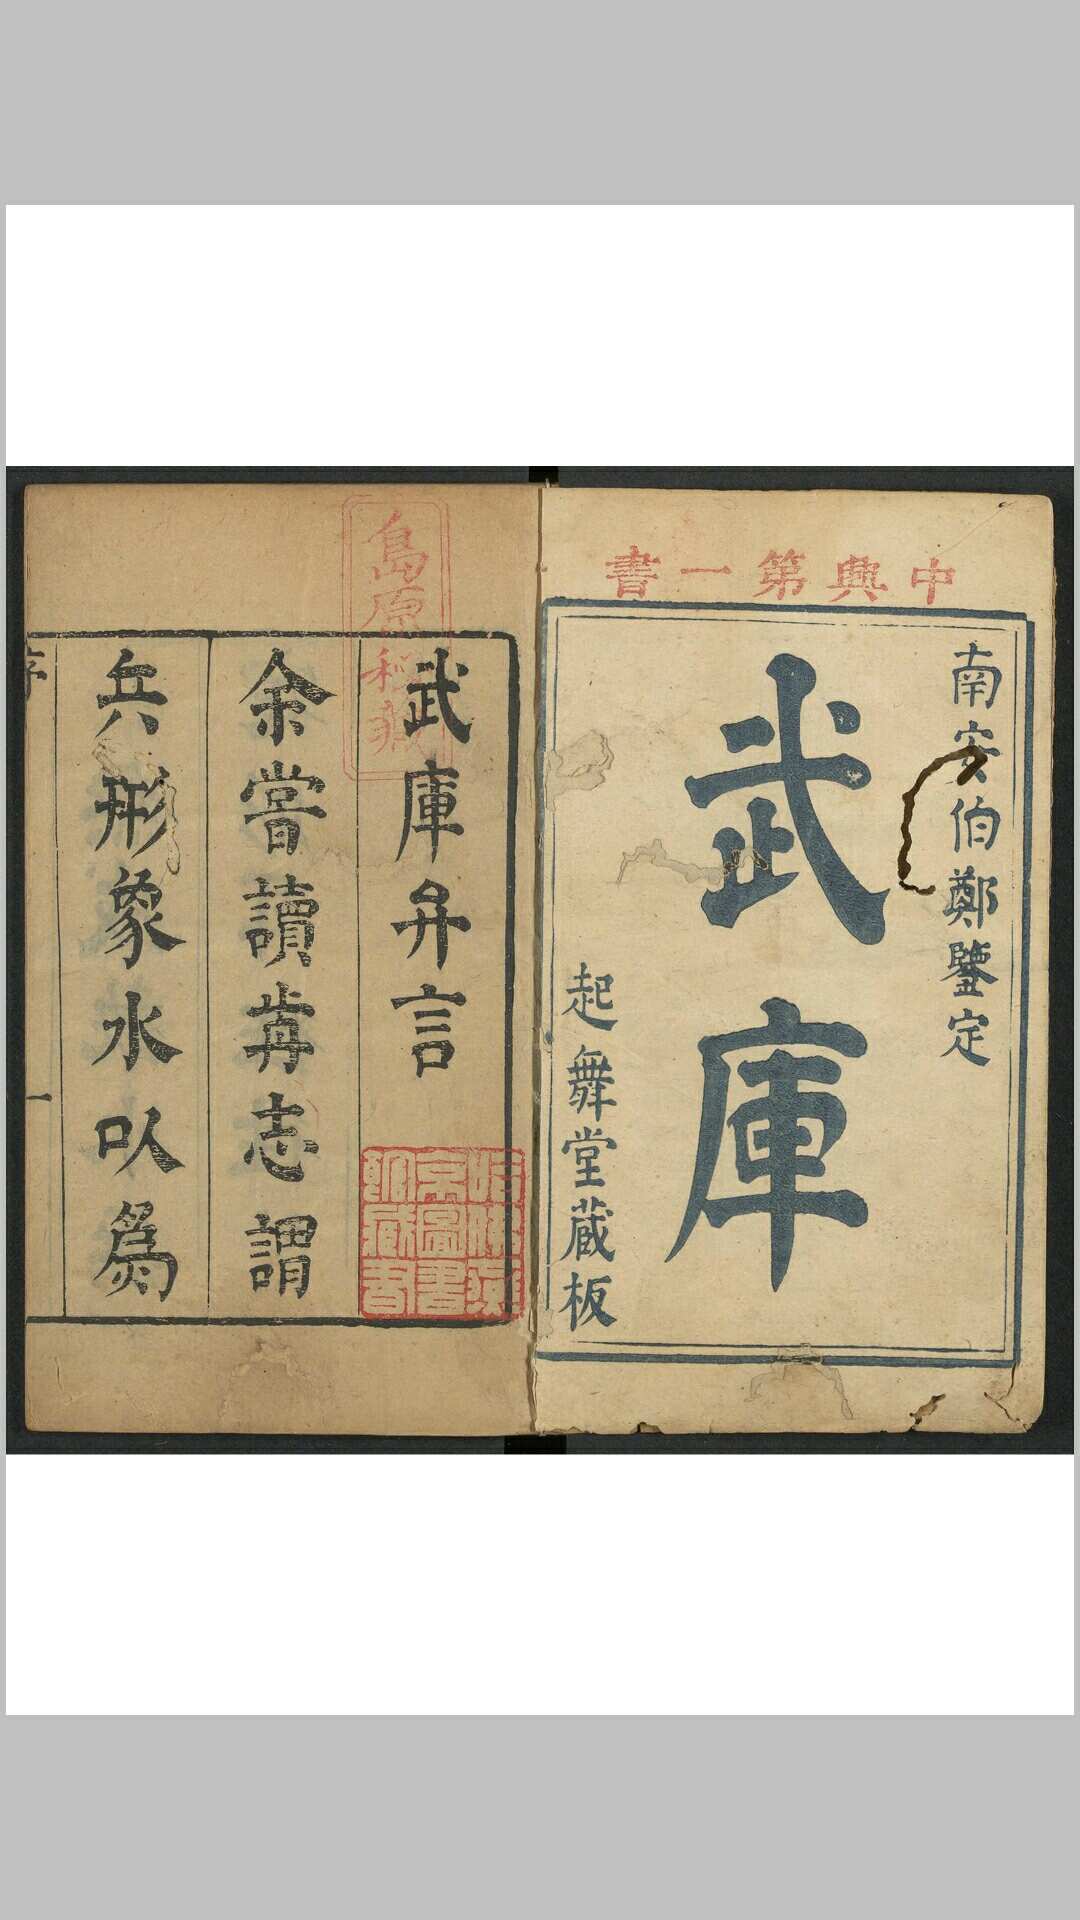 中興第一書
南安伯鄭鑒定
武庫
起舞堂蔵板
島原秘藏
武庫弁言
余嘗讀歬志謂
兵形象水㕥爲
序 一